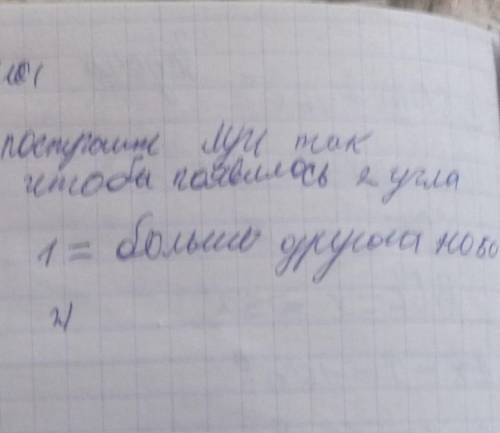 №1
постройте луч так
чтобы появилось 2 угла
1 = больше другого ново
2)